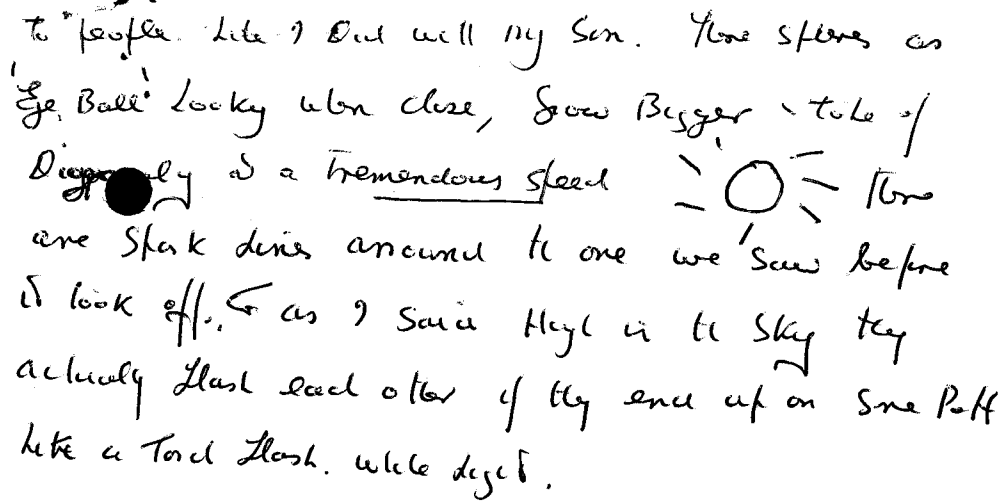 to people. Like I Did with my Son. These spheres as
'Eye Ball' Looky when close, Grow Bigger & take off
at a tremendous speed These
are Spark Lines arround the one we saw before
it took off. as I said High in the Sky they
actually Flash each other if they end up on Same Path
Like a Torch Flash. white light.